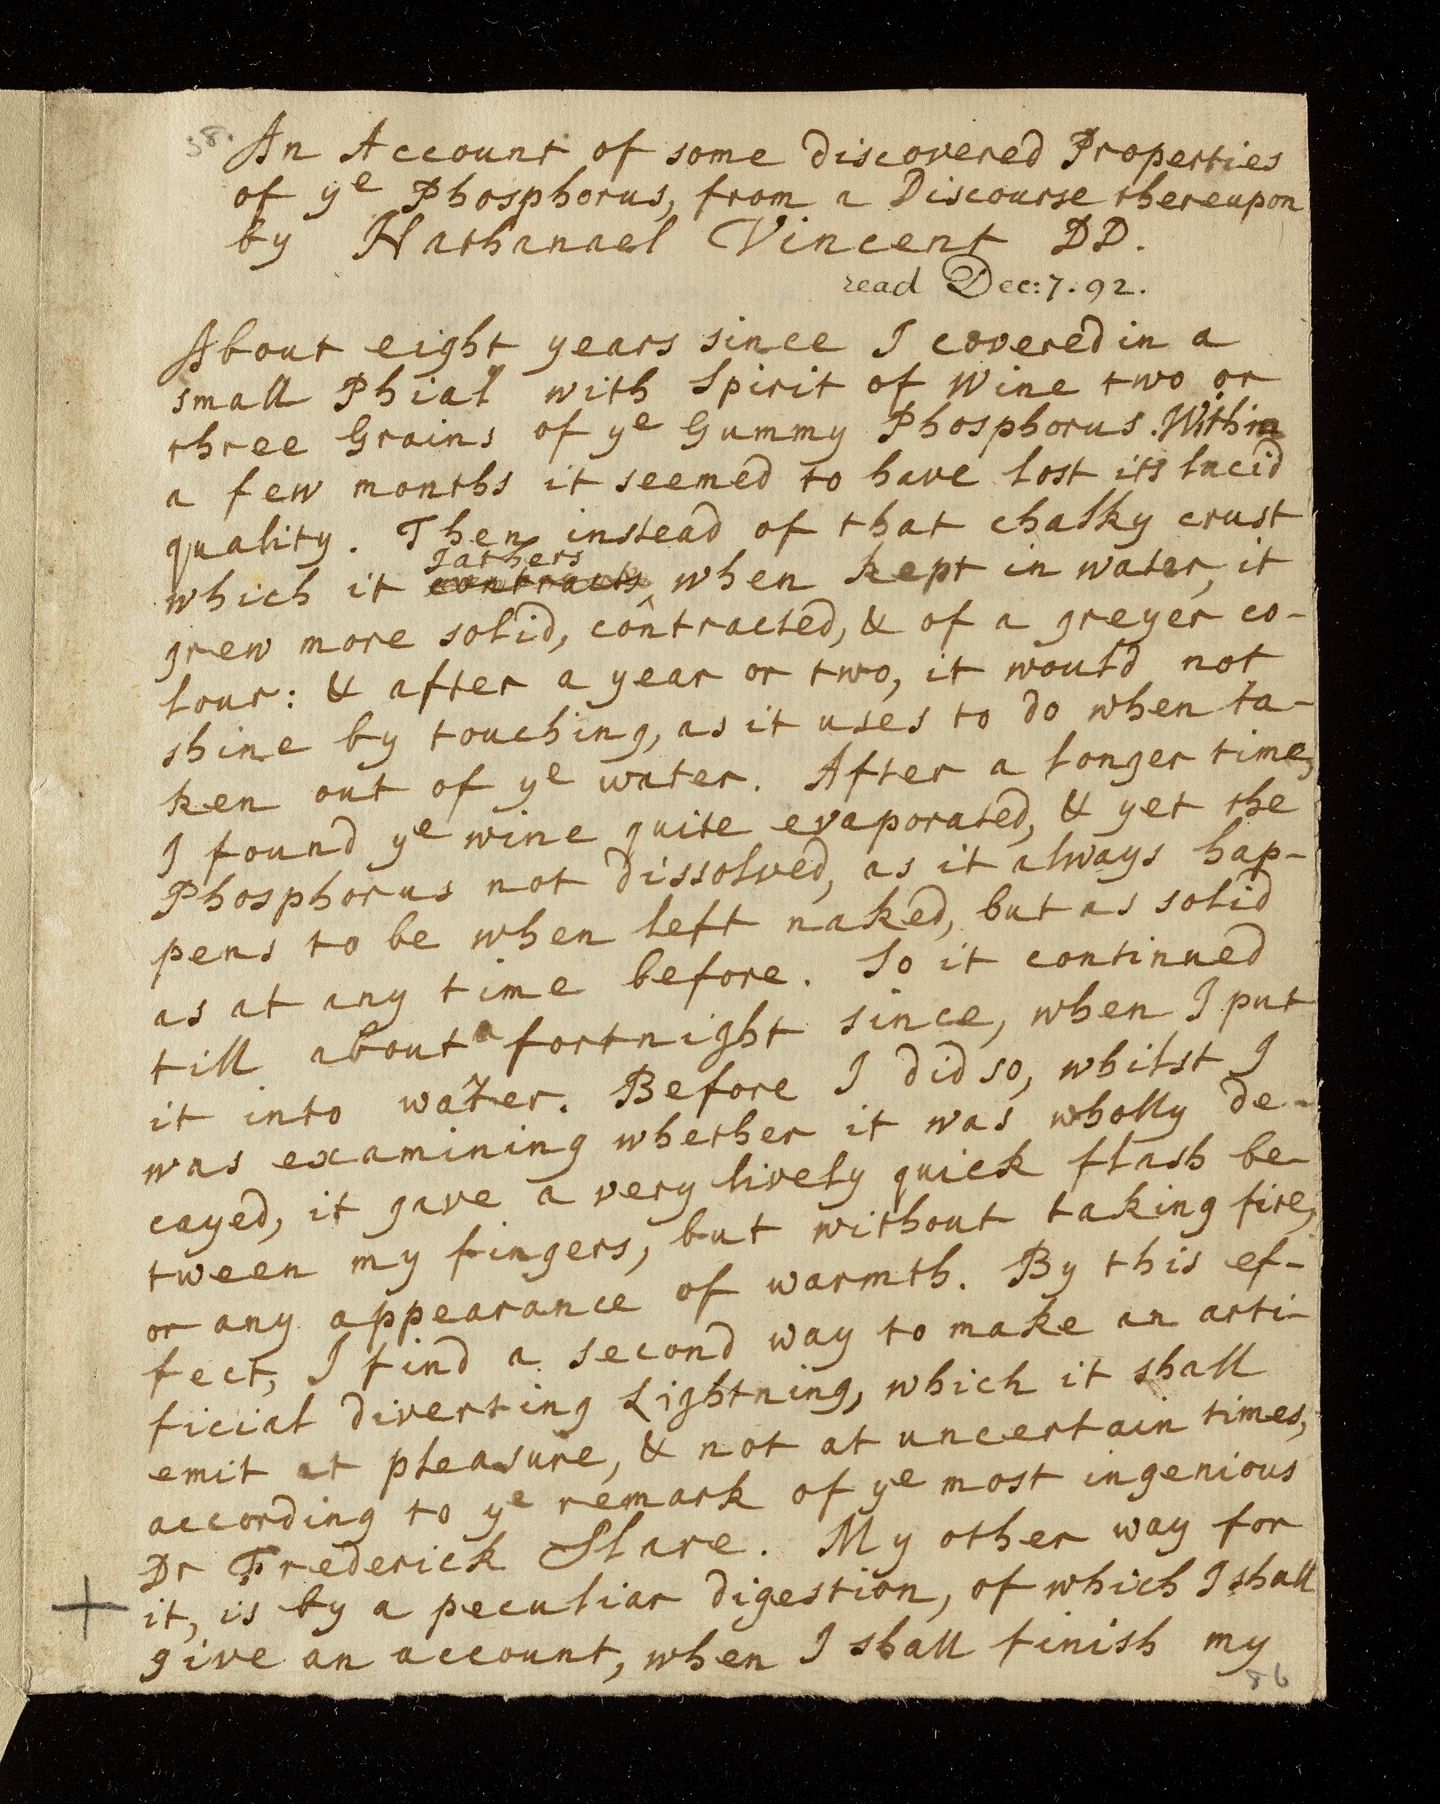 38.
An Account of some discovered Properties
of yᵉ Phosphorus, from a Discourse thereupon
by Nathanael Vincent DD.
read Dec: 7. 92.
About eight years since I covered in a
small Phial with Spirit of Wine two or
three Grains of yᵉ Gummy Phosphorus. Within
a few months it seemed to have lost its lucid
quality. Then instead of that chalky crust
gathers
which it contracts, when kept in water, it
grew more solid, contracted, & of a greyer co-
lour: & after a year or two, it would not
shine by touching, as it uses to do when ta-
ken out of yᵉ water. After a longer time,
I found yᵉ wine quite evaporated, & yet the
Phosphorus not dissolved, as it always hap-
pens to be when left naked, but as solid
as at any time before. So it continued
till about a fortnight since, when I put
it into water. Before I did so, whilst I
was examining whether it was wholly de-
cayed, it gave a very lively quick flash be-
tween my fingers, but without taking fire,
or any appearance of warmth. By this ef-
fect, I find a second way to make an arti-
ficial diverting Lightning, which it shall
emit at pleasure, & not at uncertain times,
according to yᵉ remark of yᵉ most ingenious
Dr Frederick Slare. My other way for
it, is by a peculiar digestion, of which I shall
give an account, when I shall finish my
86